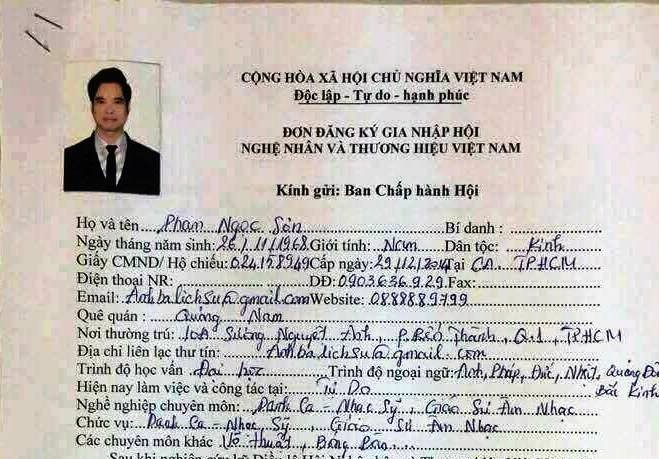 CỘNG HÒA XÃ HỘI CHỦ NGHĨA VIỆT NAM
Độc lập - Tự do - hạnh phúc
ĐƠN ĐĂNG KÝ GIA NHẬP HỘI
NGHỆ NHÂN VÀ THƯƠNG HIỆU VIỆT NAM
Kính gửi: Ban Chấp hành Hội
Họ và tên.....Phạm Ngọc Sơn Bí danh :
Ngày tháng năm sinh: 26/11/1968 Giới tính: Nam Dân tộc: Kinh
Giấy CMND/ Hộ chiếu: 024158949 Cấp ngày: 29/12/2014 Tại CA. TPHCM
Điện thoại NR: DĐ: 0903636.9.29 Fax:
Email: Anhbalichsu@gmail.com Website: 0888889799
Quê quán : Quảng Nam
Nơi thường trú: 10A Sương Nguyệt Anh, P.Bến Thành, Q.1, TPHCM
Địa chỉ liên lạc thư tín: Anhbalichsu@gmail.com
Trình độ học vấn Đại học Trình độ ngoại ngữ: Anh, Pháp, Đức, Nhật, Quảng Đông
Hiện nay làm việc và công tác tại: Tự Do Bắc Kinh
Nghề nghiệp chuyên môn: Danh Ca - Nhạc Sỹ, Giáo Sư Âm Nhạc
Chức vụ: Danh Ca - Nhạc Sỹ, Giáo Sư Âm Nhạc
Các chuyên môn khác Võ thuật, Bóng bàn